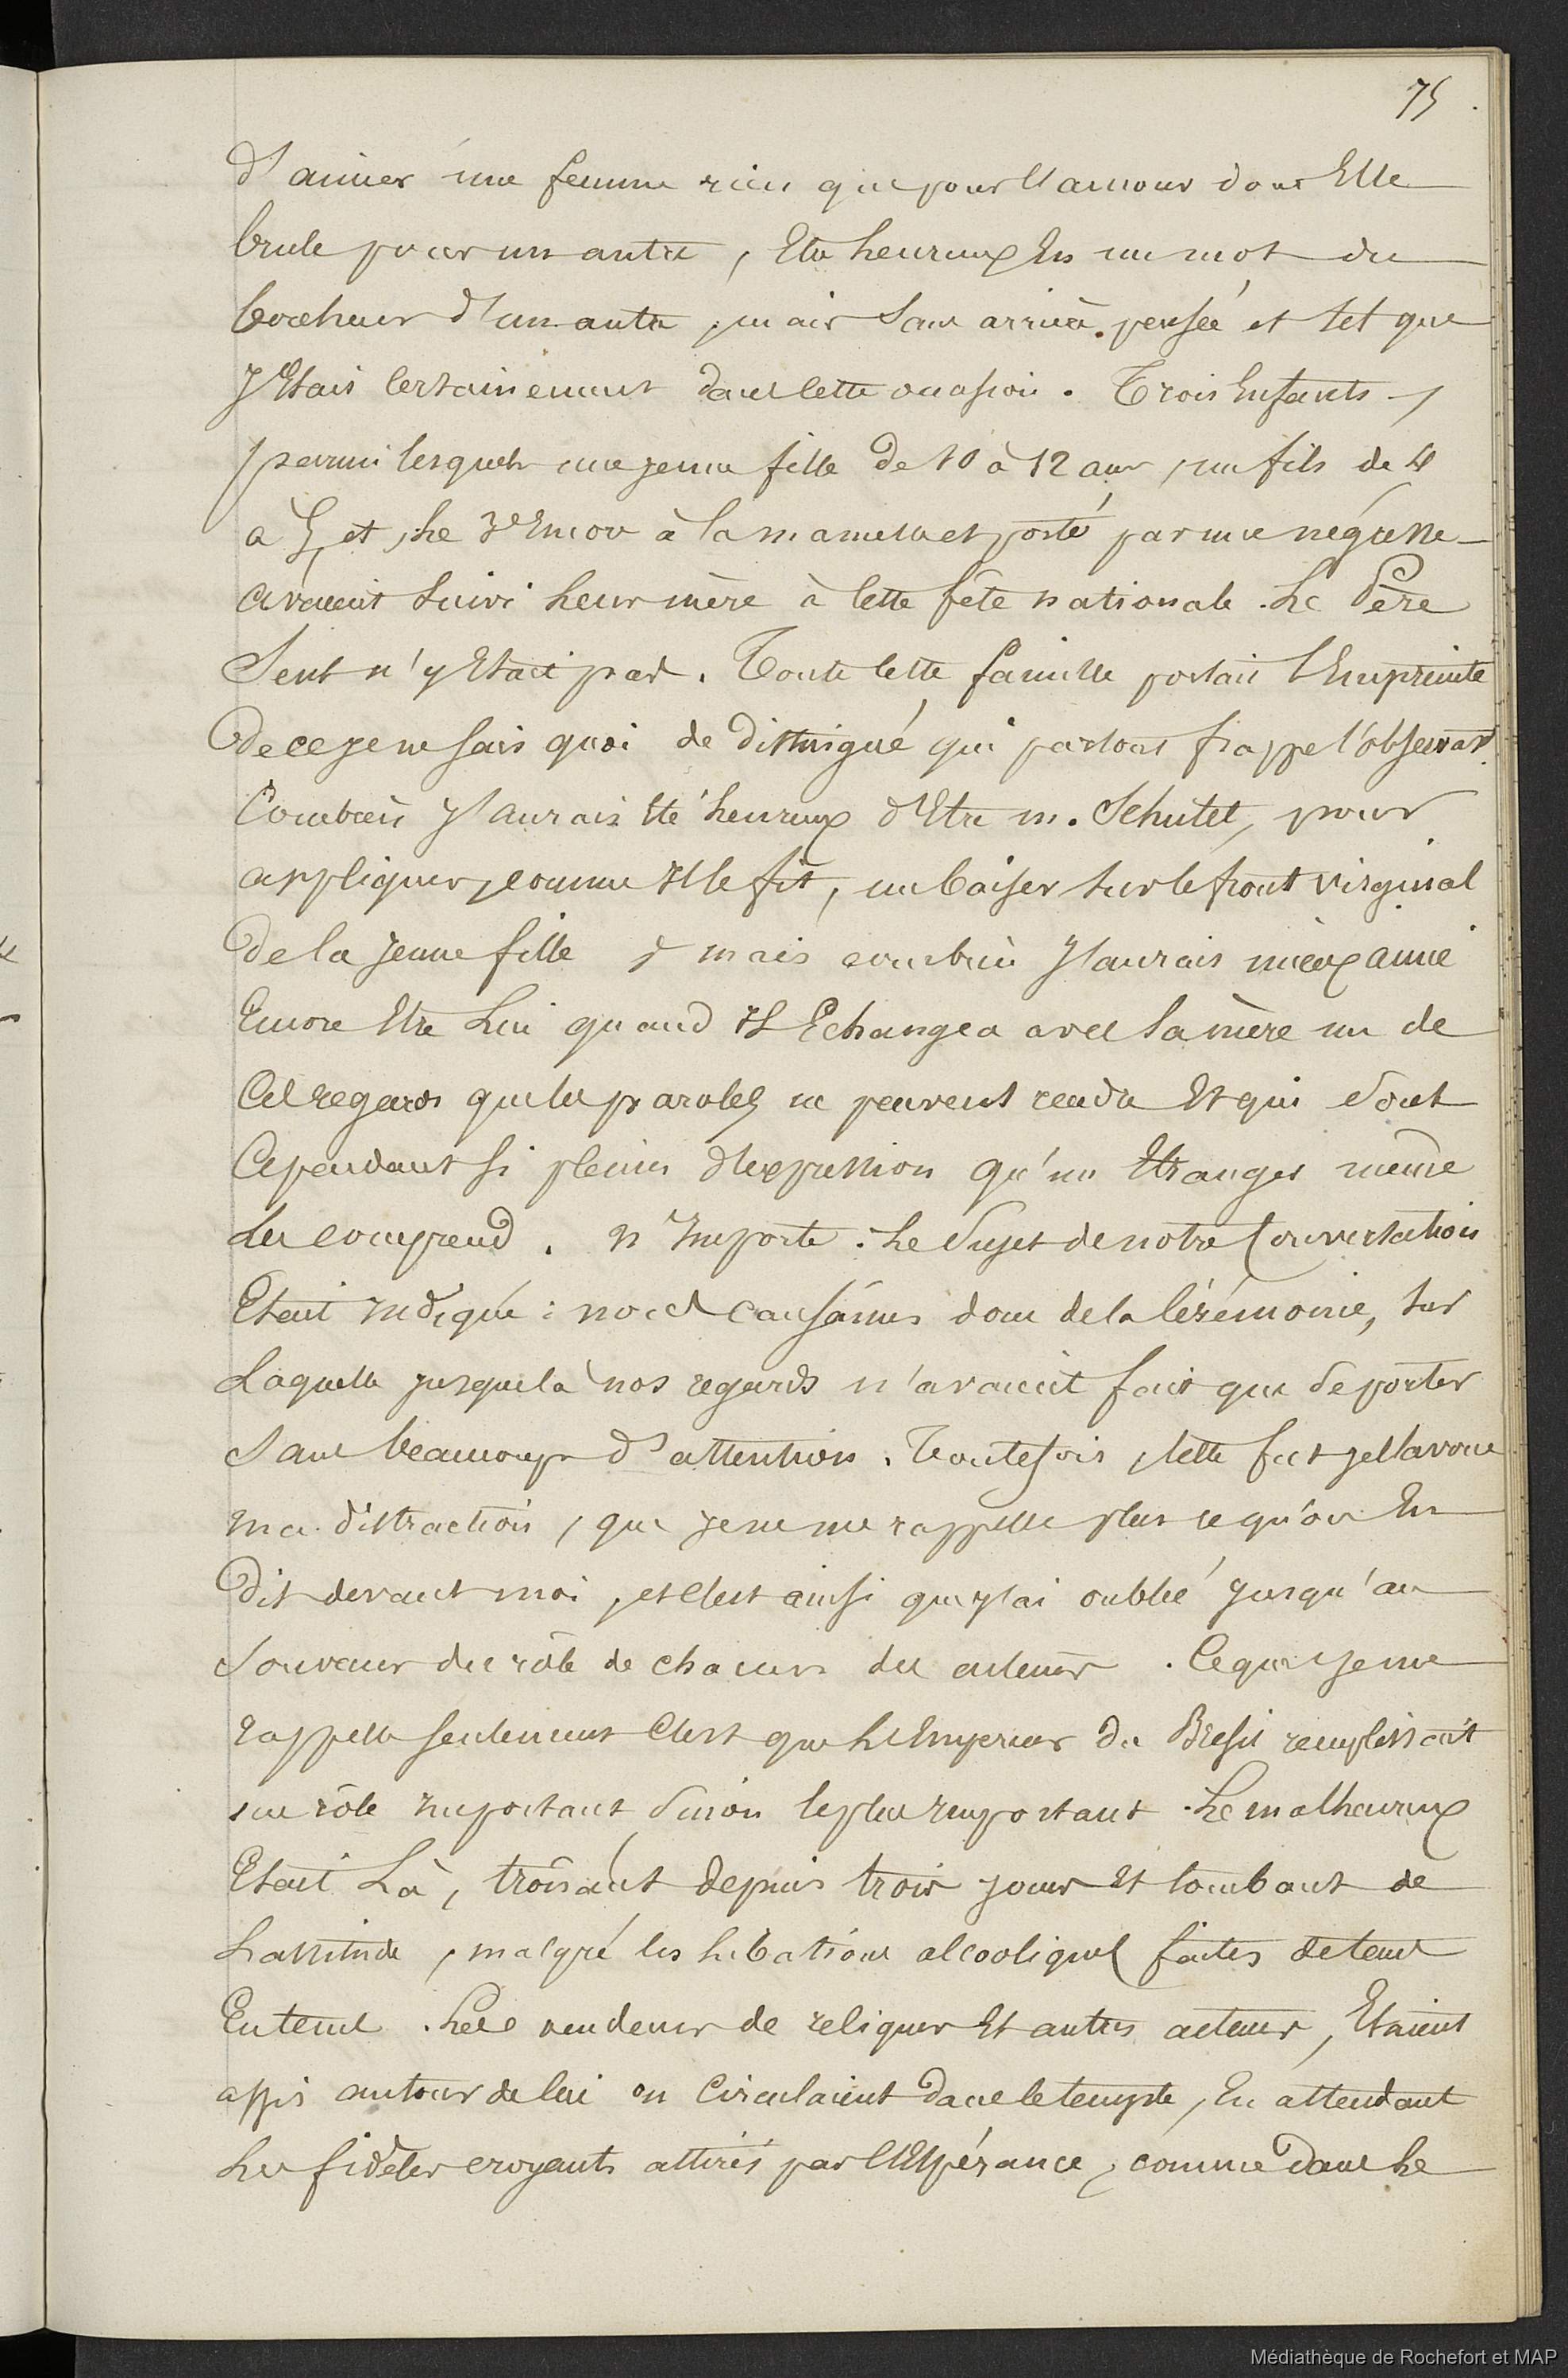 75
d'aimer une femme rien que pour l'amour dont Elle
brule pour un autre, Etre heureux En un mot du
bonheur d'un autre, mais sans arrière. pensée et tel que
J'Etais Certainement dans Cette occasion. Trois Enfants,
parmi lesquels une jeune fille de 10 à 12 ans, un fils de 4
à 5, et, Le 3e Encor à la mamelle et porté par une négresse
avaient suivi Leur mère à Cette fête nationale. Le Père
Seul n'y Etait pas. Toute Cette famille portait l'Empreinte
De ce je ne sais quoi de distingué qui partout frappe l'observat.
Combien J'aurais Eté heureux d'Etre m. Schutel, pour
appliquer, comme Il le fit, un baiser sur le front virginal
De la Jeune fille, mais combien J'aurais mieux aimé
Encore Etre Lui quand Il Echangea avec la mère un de
Ces regards que les paroles ne peuvent rendre Et qui Sont
Cependant si pleins d'expression qu'un Etranger même
Les comprend. N'Importe. Le Sujet de notre Conversation
Etait Indiqué: nous causâmes donc de la Cérémonie, sur
Laquelle jusque là nos regards n'avaient fait que se porter
Sans beaucoup d'attention. Toutefois, telle fut je l'avoue
ma distraction, que je ne me rappelle plus ce qu'on En
Dit devant moi, et C'est ainsi que j'ai oublié jusqu'au
Souvenir du rôle de chacun des acteurs. Ce que je me
rappelle seulement C'est que L'Empereur du Brésil remplissait
un rôle Important Sinon le plus Important. Le malheureux
Etait Là, trônant depuis trois jours Et tombant de
Lassitude, malgré les Libations alcooliques faites de tems
En tems. Les vendeurs de reliques Et autres acteurs, Etaient
assis autour de lui ou Circulaient dans le temple, En attendant
Les fidèles croyants attirés par l'Espérance, comme dans Le
Médiathèque de Rochefort et MAP